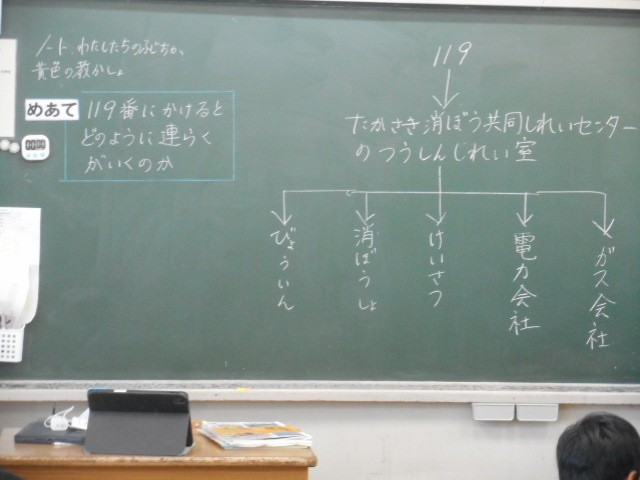 ノート、わたしたちのふじおか、
黄色の教かしょ
めあて
119番にかけると
どのように連らく
がいくのか
119
たかさき消ぼう共同しれいセンター
のつうしんじれい室
びょういん
消ぼうしょ
けいさつ
電力会社
ガス会社